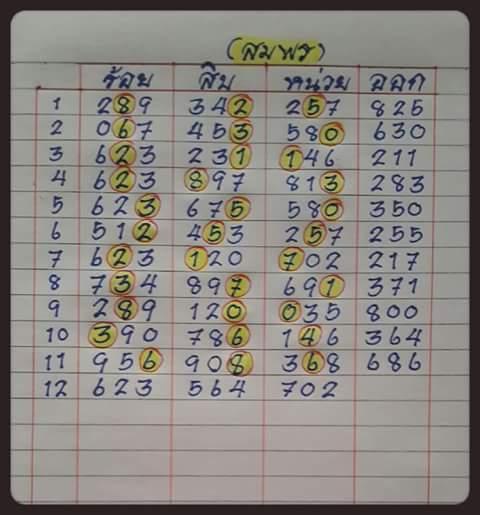 (สมพร)
ร้อย สิบ หน่วย ออก
1 289 342 257 825
2 067 453 580 630
3 623 231 146 211
4 623 897 813 283
5 623 675 580 350
6 512 453 257 255
7 623 120 702 217
8 734 897 691 371
9 289 120 035 800
10 390 786 146 364
11 956 908 368 686
12 623 564 702